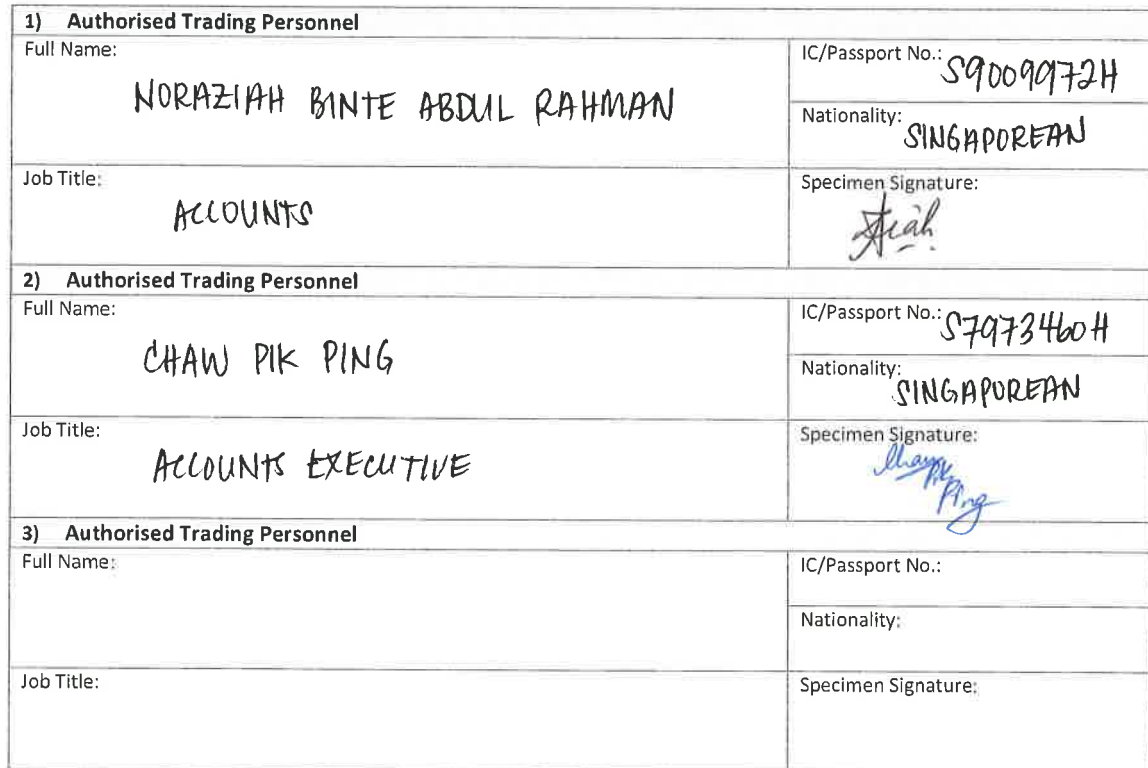 1) Authorised Trading Personnel
Full Name:
NORAZIAH BINTE ABDUL RAHMAN
IC/Passport No.: S9009972H
Nationality: SINGAPOREAN
Job Title:
ACCOUNTS
Specimen Signature:
2) Authorised Trading Personnel
Full Name:
CHAW PIK PING
IC/Passport No.: S7973460H
Nationality: SINGAPOREAN
Job Title:
ACCOUNTS EXECUTIVE
Specimen Signature:
Chaw
Pik
Ping
3) Authorised Trading Personnel
Full Name:
IC/Passport No.:
Nationality:
Job Title:
Specimen Signature: